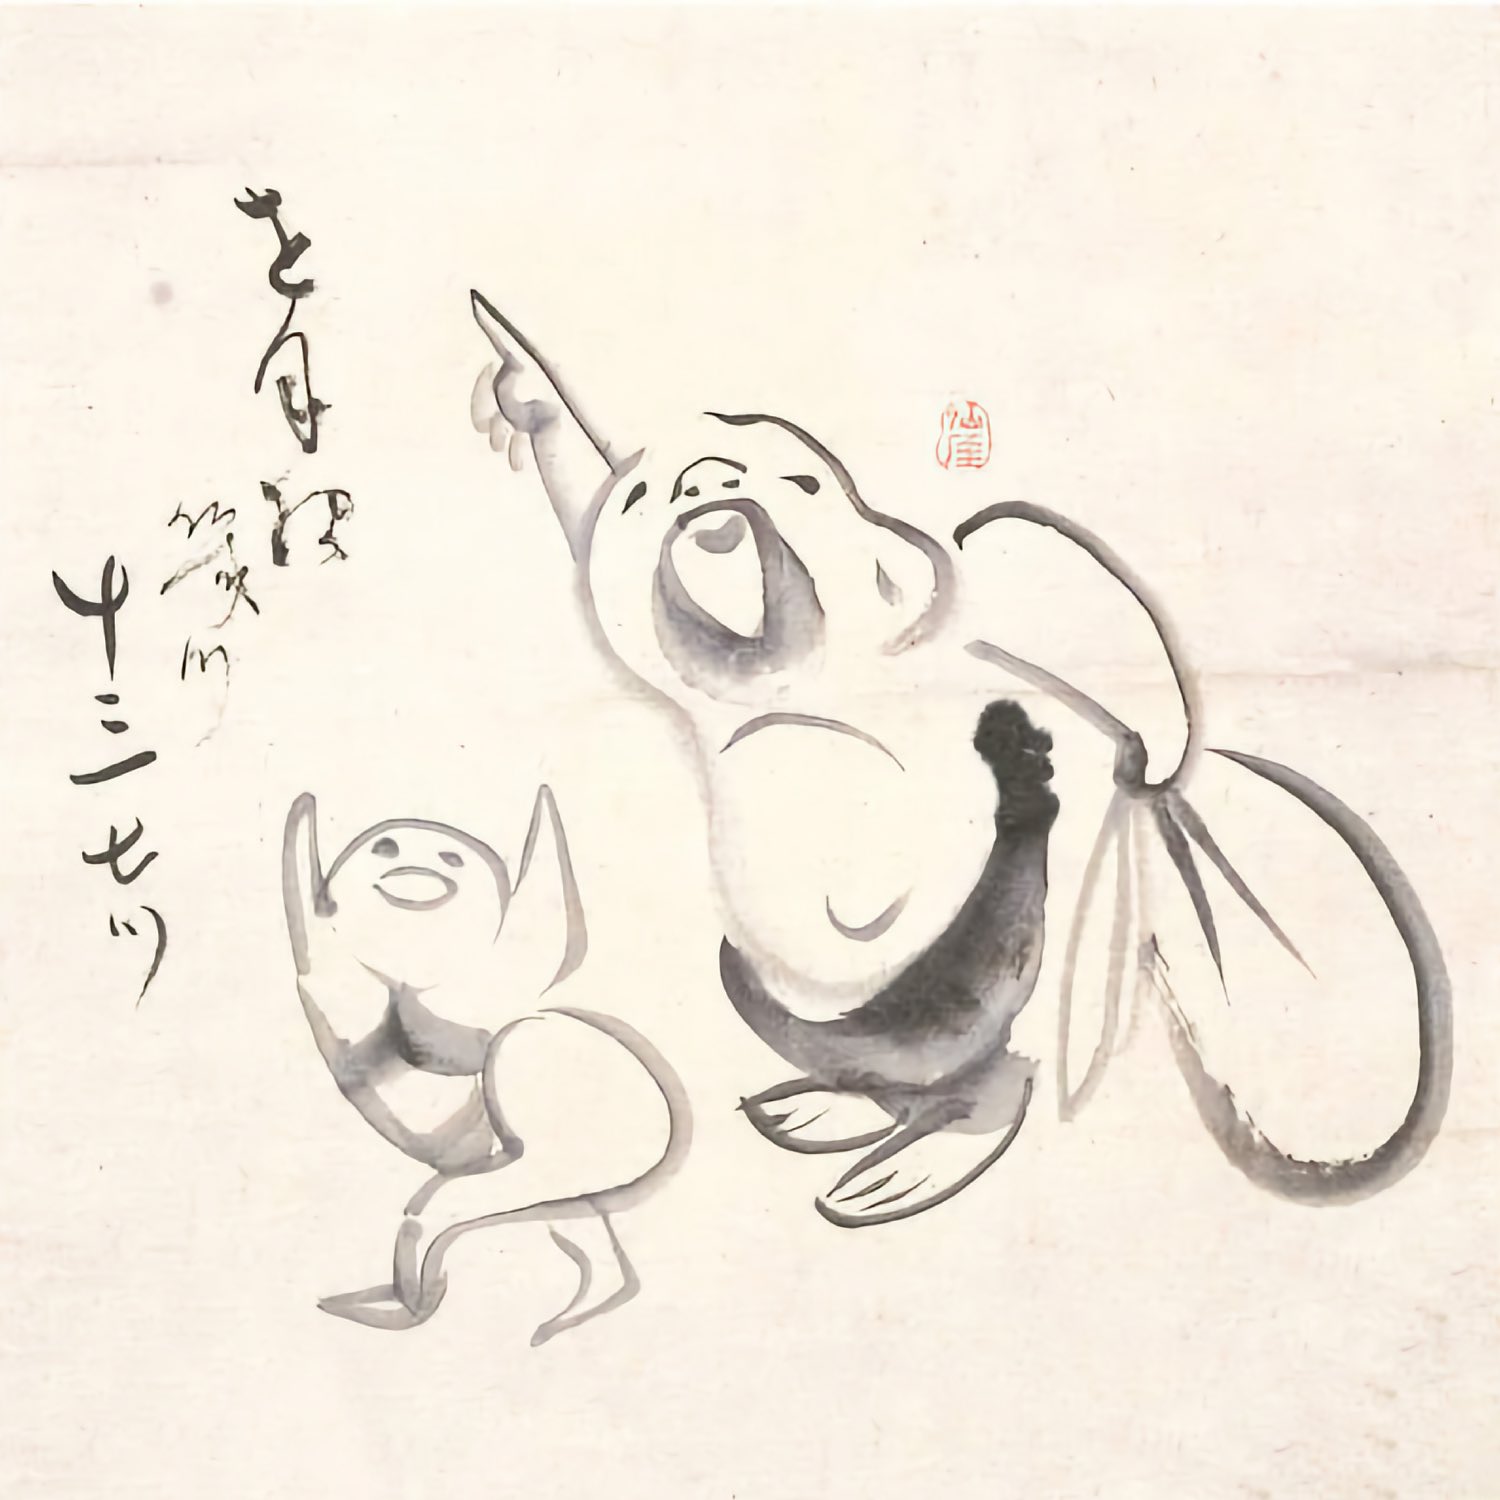 仙厓
を月様
幾つ
十三七つ